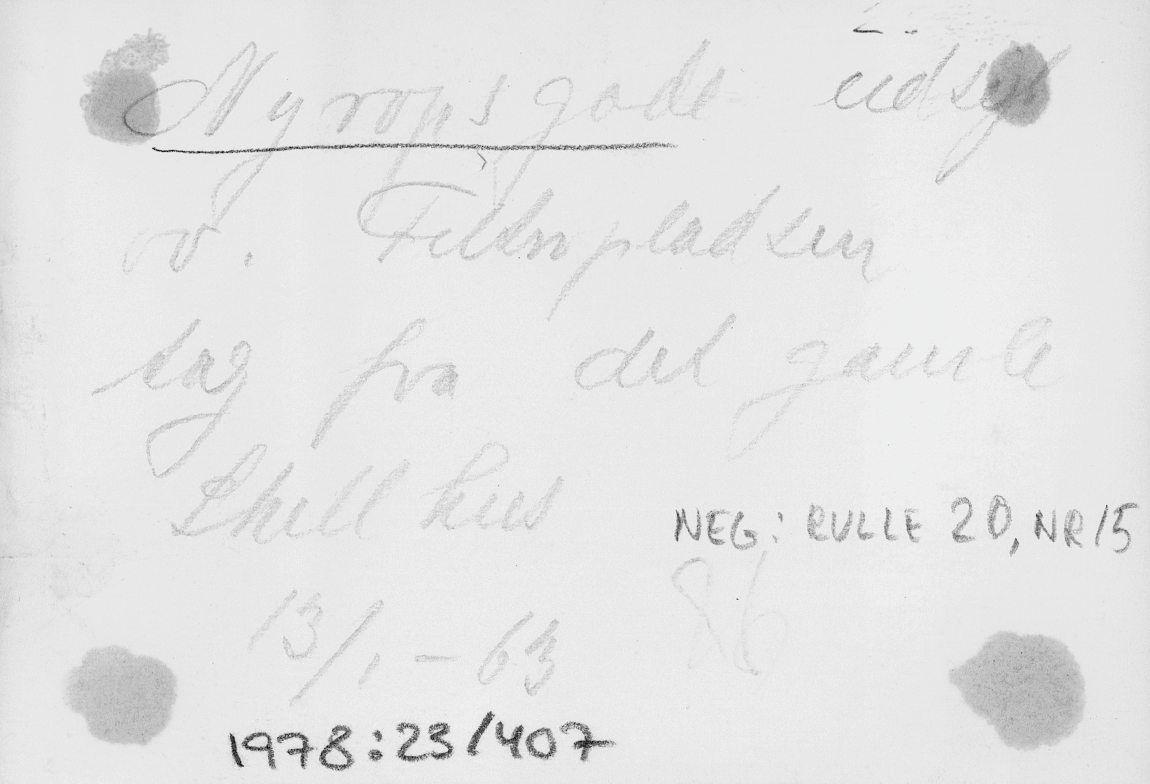 Nyropsgade udsyt
ov. Filmpladsen
tag fra det gamle
Shell hus
NEG: RULLE 20, NR 15
86
13/1 - 63
1978:23/407